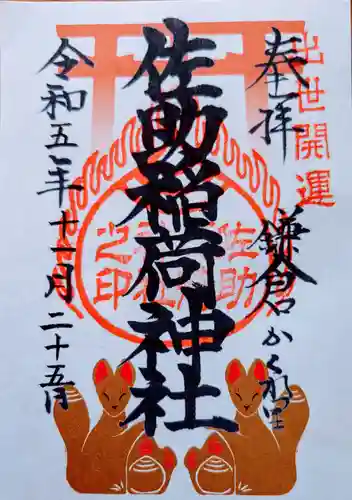 出世開運
奉拝
鎌倉かくれ里
佐助稲荷神社
令和五年十一月二十五日
佐助稲荷神社之印